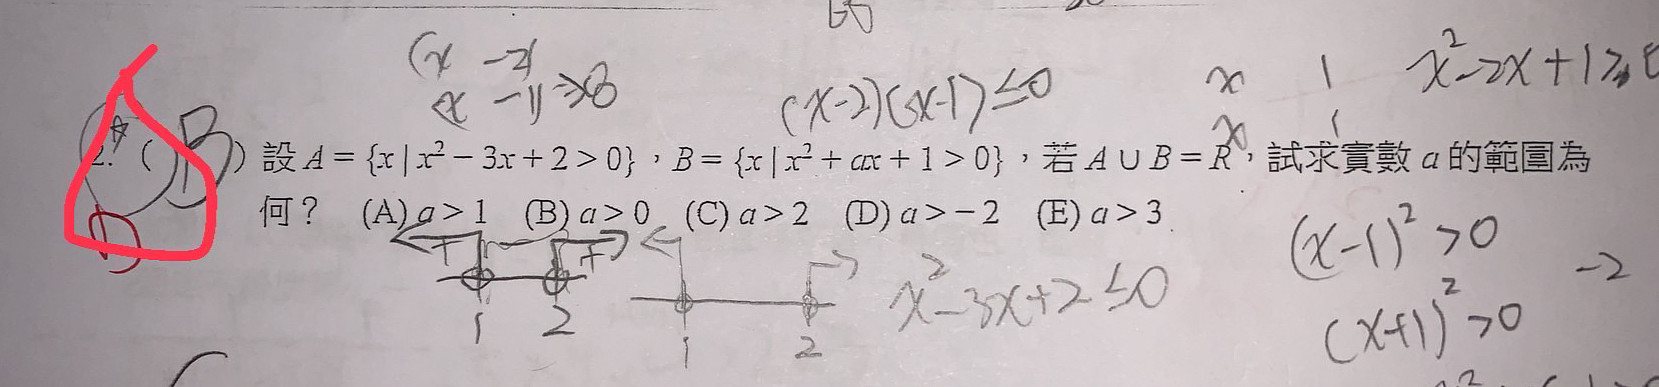 (x -2)
(x -1) >0
(x-2)(x-1)≤0
x 1
x 1
x²-2x+1>0
2. ( B ) 設 A = {x | x² − 3x + 2 > 0}，B = {x | x² + ax + 1 > 0}，若 A ∪ B = R，試求實數 a 的範圍為
何？ (A) a > 1 (B) a > 0 (C) a > 2 (D) a > − 2 (E) a > 3
D
+ +
1 2
1 2
x²-3x+2≤0
(x-1)²>0
-2
(x+1)²>0